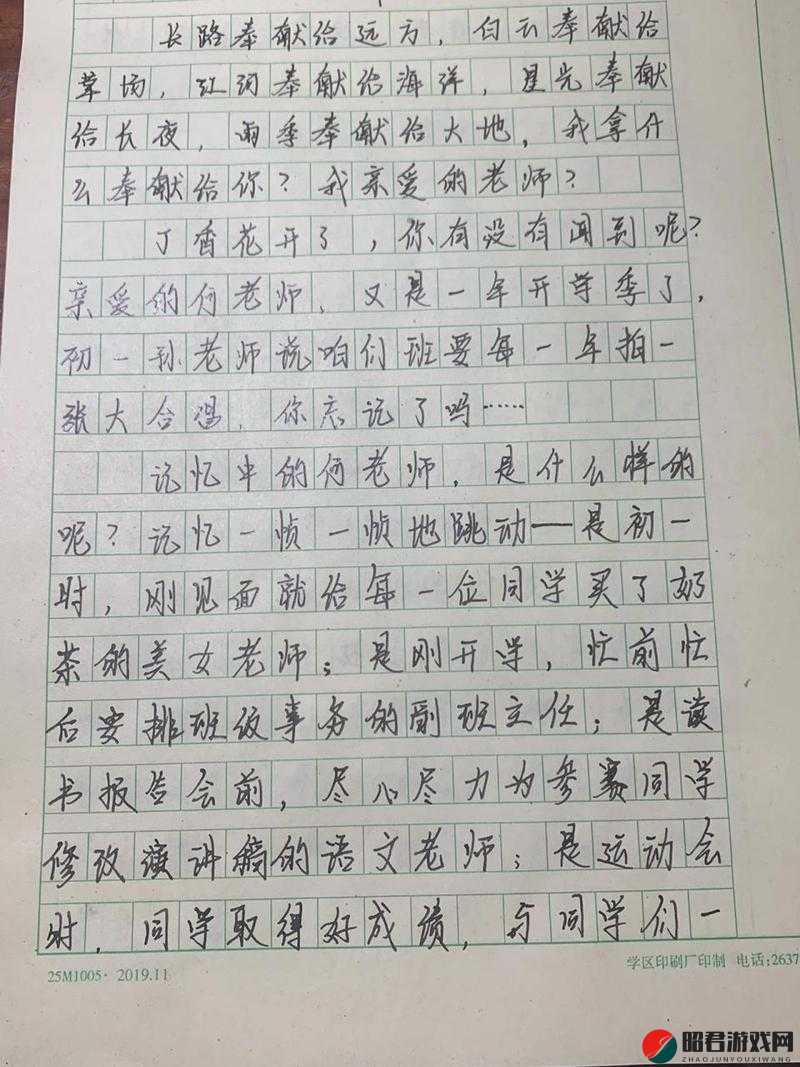 长路奉献给远方，白云奉献给
草场，江河奉献给海洋，星光奉献
给长夜，雨季奉献给大地，我拿什
么奉献给你？我亲爱的老师？
丁香花开了，你有没有闻到呢？
亲爱的何老师，又是一年开学季了，
初一孙老师说咱们班要每一年拍一
张大合照，你忘记了吗……
记忆中的何老师，是什么样的
呢？记忆一帧一帧地跳动——是初一
时，刚见面就给每一位同学买了奶
茶的美女老师；是刚开学，忙前忙
后安排班级事务的副班主任；是读
书报告会前，尽心尽力为参赛同学
修改演讲稿的语文老师；是运动会
时，同学取得好成绩，与同学们一
25M1005·2019.11
学区印刷厂印制 电话:2637
昭君游戏网
ZHAOJUNYOUXIWANG